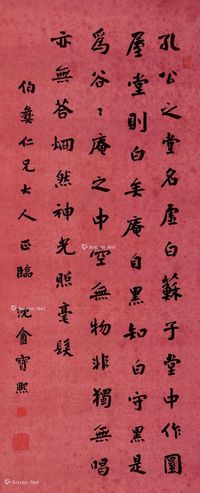 孔公之堂名虛白蘇子堂中作圓
屋堂則白矣庵自黑知白守黑是
為谷谷庵之中空無物非獨無唱
亦無荅烱然神光照毫髮
伯彝仁兄大人正臨 沈盦寶熙